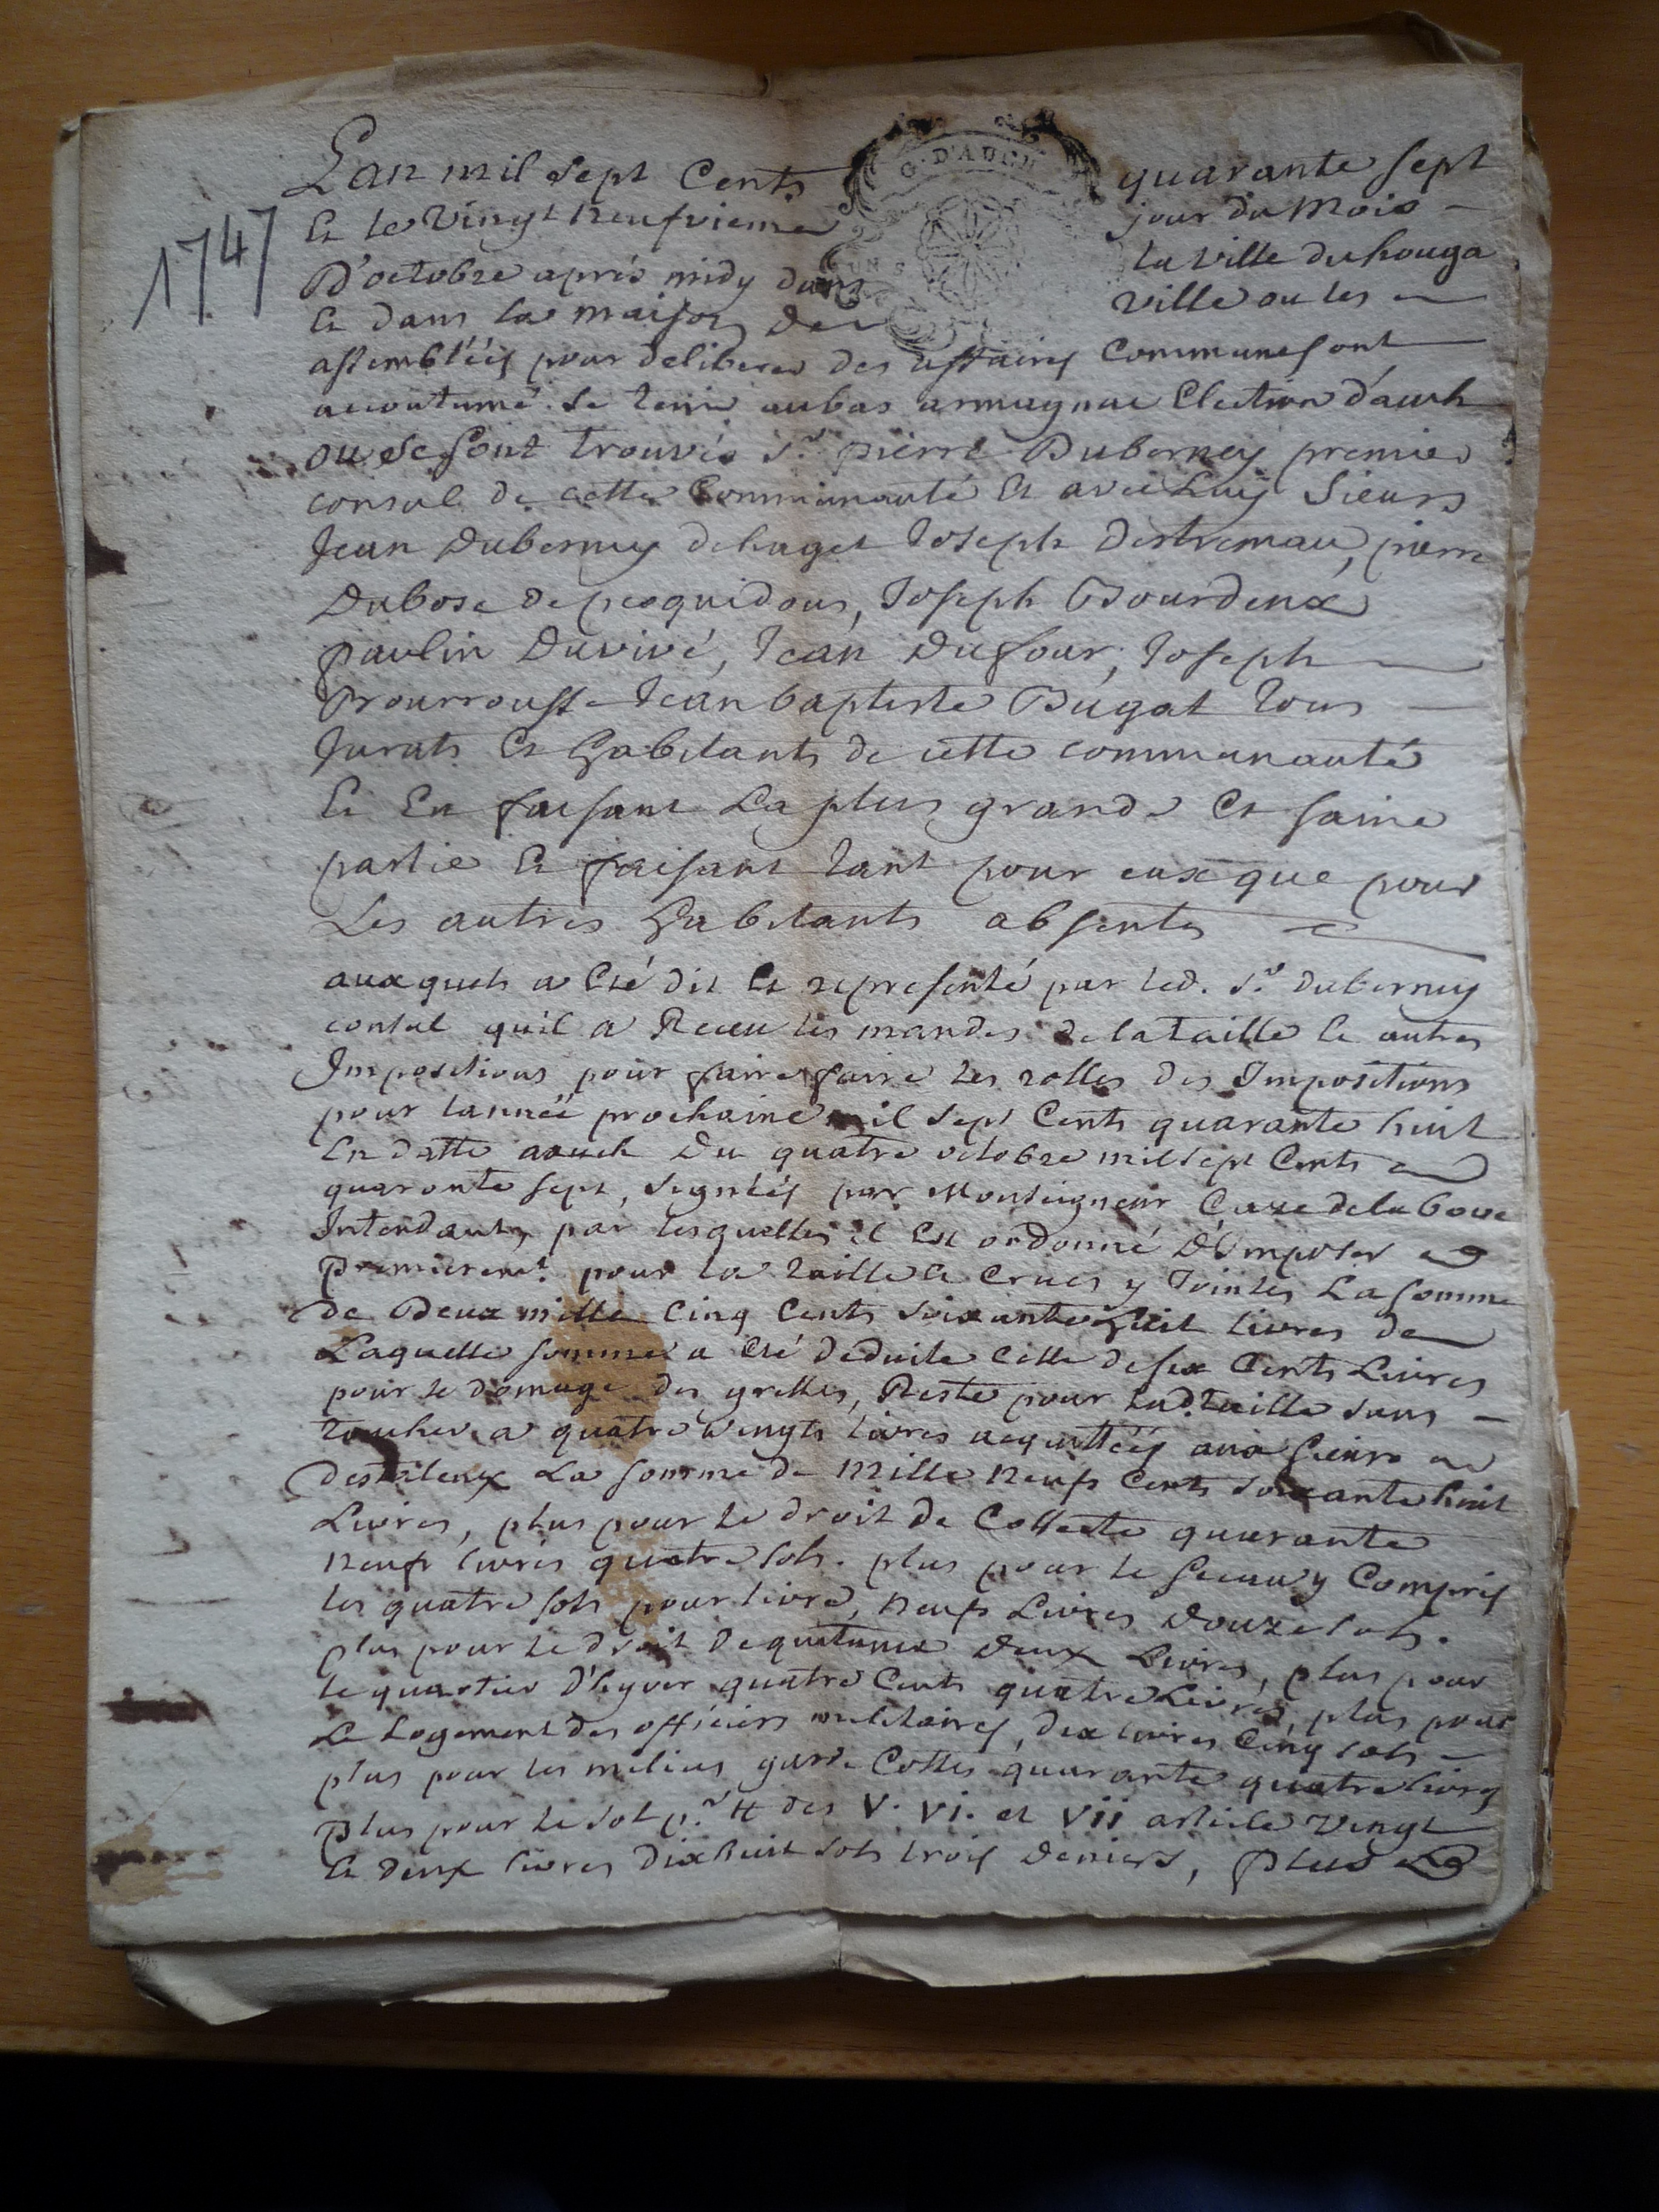 G. D'AUCH
1747
Lan mil sept Cents quarante sept
Et le Vingt neufvieme jour du Mois
D'octobre aprés midy dans la Ville du houga
Et dans la maison de ville ou les
assemblééš pour deliberer des affaires Communes ont
accoutumé se tenir au bas armagnac Election d'auch
ou se sont trouvés Sr. pierre Duberney premier
consul de cette Communauté Et avec Luy Sieurs
Jean Duberney de haget Joseph Destremau, pierre
Dubosc de pesquidous, Joseph Bourdeux
paulin Duvivé, Jean Dufour, Joseph
Prourrousse Jean baptiste Dugat tous
Jurats Et habitants de cette communauté
Et En faisant La plus grande Et saine
partie Et faisant tant pour eux que pour
Les autres habitants absents
auxquels a Eté dit Et representé par led. Sr. duberney
consul quil a Receu les mandes de la taille Et autres
Impositions pour faire faire les rolles des Impositions
pour lannéé prochaine mil sept Cents quarante huit
En datte a auch Du quatre octobre mil sept Cents
quarante sept, signéés par Monseigneur Caze de la bove
Intendant, par lesquelles il Est ordonné D'Imposer
Premieremt. pour la taille Et Crues y Jointes La somme
de Deux mille Cinq Cents soixante huit livres de
Laquelle somme a Eté deduite Celle de six Cents Livres
pour le domage des grelles, Reste pour lad. taille sans
toucher a quatre Vingts livres acquittéés aux sieurs
La somme de mille neuf Cents soixante huit
Livres, plus pour le droit de Collecte quarante
neuf livres quatre sols. plus pour le sceau y Compris
les quatre sols pour livre, neuf Livres Douze sols.
plus pour le droit de quitance Deux Livres, plus pour
le quartier D'hyver quatre Cents quatre Livres, plus pour
Le Logement des officiers militaires, dix livres Cinq sols
plus pour les milices garde Costes quarante quatre livres
Plus pour le sol pr. tt des V. VI. et VII article Vingt
Et deux livres Dix huit sols trois deniers, Plus